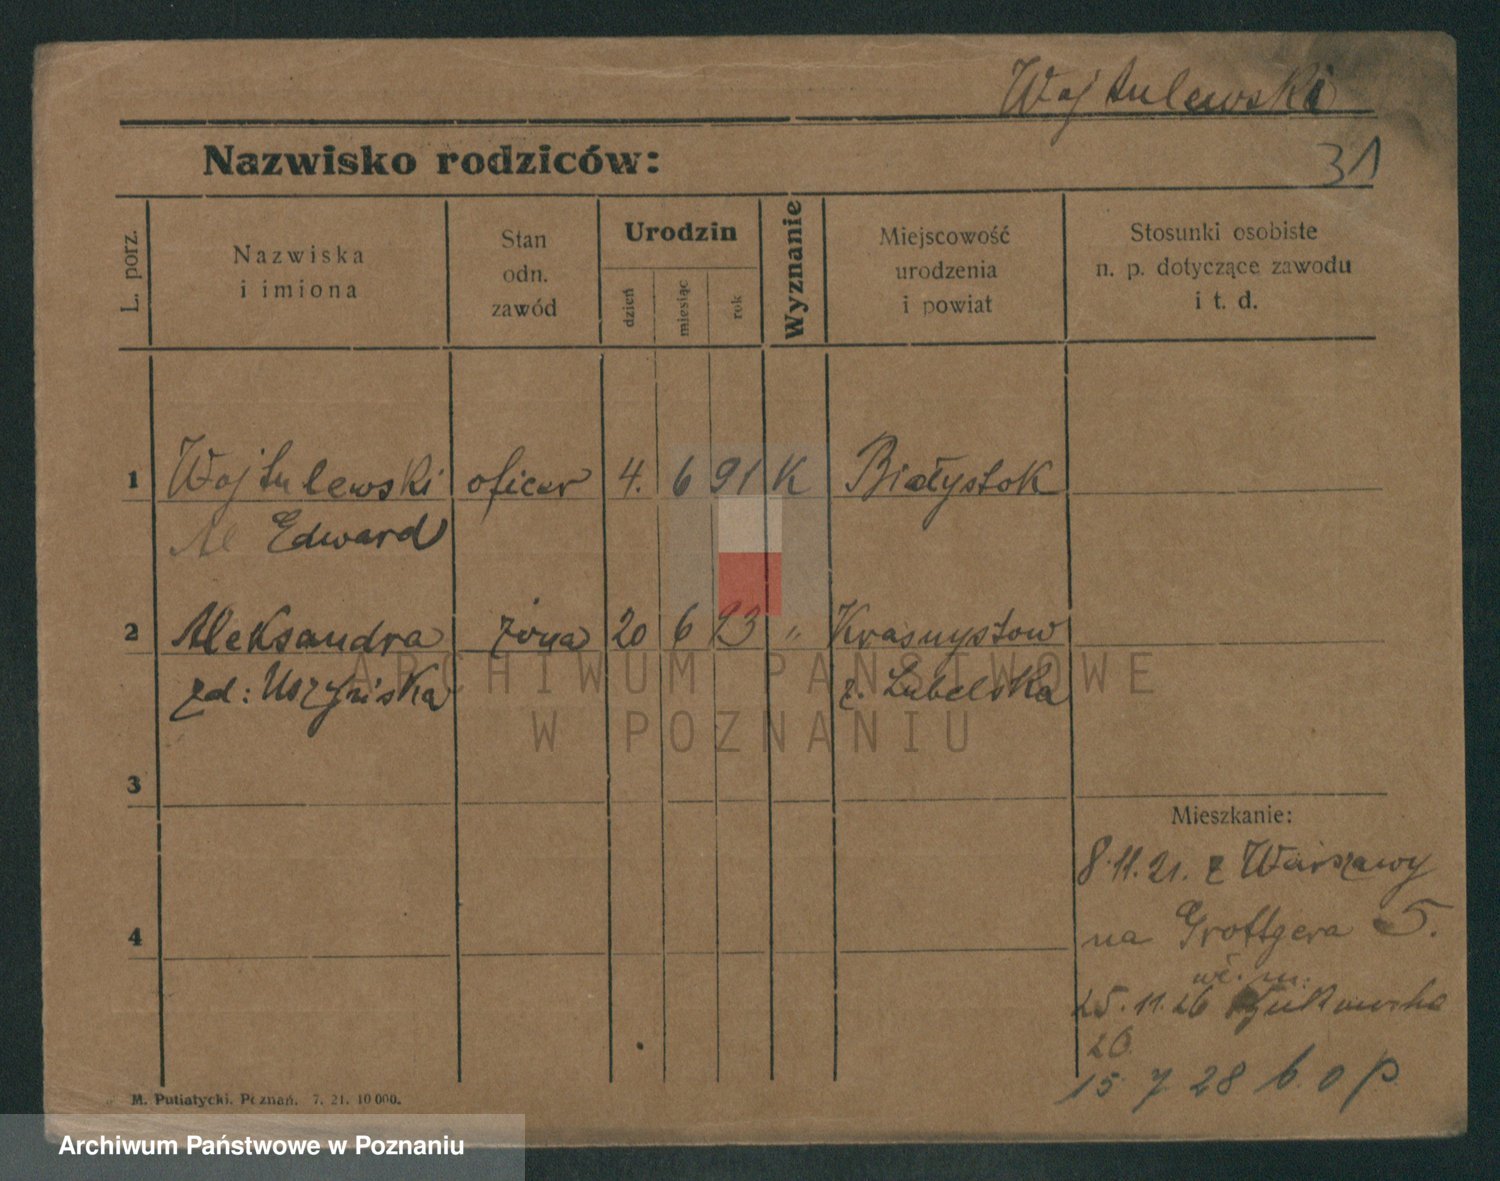 Wojtulewski
Nazwisko rodziców:
31
L. porz.
Nazwiska
i imiona
Stan
odn.
zawód
Urodzin
dzień
miesiąc
rok
Wyznanie
Miejscowość
urodzenia
i powiat
Stosunki osobiste
n. p. dotyczące zawodu
i t. d.
1 Wojtulewski oficer 4. 6 91 K Białystok
Edward
2 Aleksandra żona 20 6 93 " Krasnystow
z. Lubelska
ARCHIWUM PAŃSTWOWE
W POZNANIU
3
Mieszkanie:
8.11.21. z Warszawy
4
na Grottgera 5.
25.11.26
26
15 7 28 b. o p.
M. Putiatycki. Poznań. 7. 21. 10 000.
Archiwum Państwowe w Poznaniu